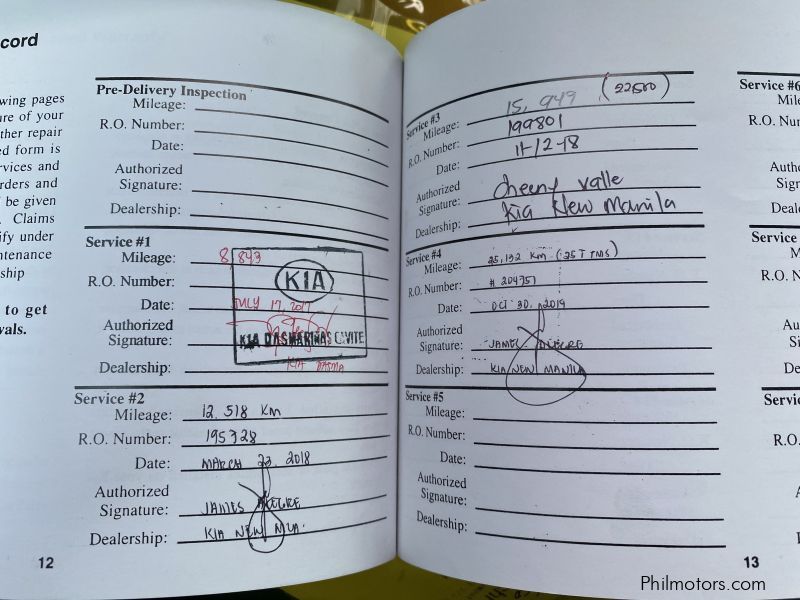 cord
wing pages
ure of your
ther repair
ed form is
rvices and
rders and
be given
. Claims
ify under
ntenance
ship
to get
vals.
Pre-Delivery Inspection
Mileage:
R.O. Number:
Date:
Authorized
Signature:
Dealership:
Service #1
Mileage: 8,843
KIA
R.O. Number:
Date: JULY 17, 2017
Authorized
Signature:
KIA DASMARIÑAS CAVITE
Dealership: KIA DASMA
Service #2
Mileage: 12,518 KM
R.O. Number: 195728
Date: MARCH 23, 2018
Authorized
Signature: JAMES NEGRE
Dealership: KIA NEW MLA.
12
Service #3
Mileage: 15,949 (22500)
R.O. Number: 199801
Date: 11-12-18
Authorized
Signature: cheeny valle
Dealership: Kia New Manila
Service #4
Mileage: 25,132 KM (25T TMS)
R.O. Number: # 204757
Date: OCT. 30, 2019
Authorized
Signature: JAMES NEGRE
Dealership: KIA NEW MANILA
Service #5
Mileage:
R.O. Number:
Date:
Authorized
Signature:
Dealership:
Service #6
Mile
R.O. Nu
Auth
Sign
Deale
Service
M
R.O. N
A
S
De
Servic
R.O.
13
Philmotors.com